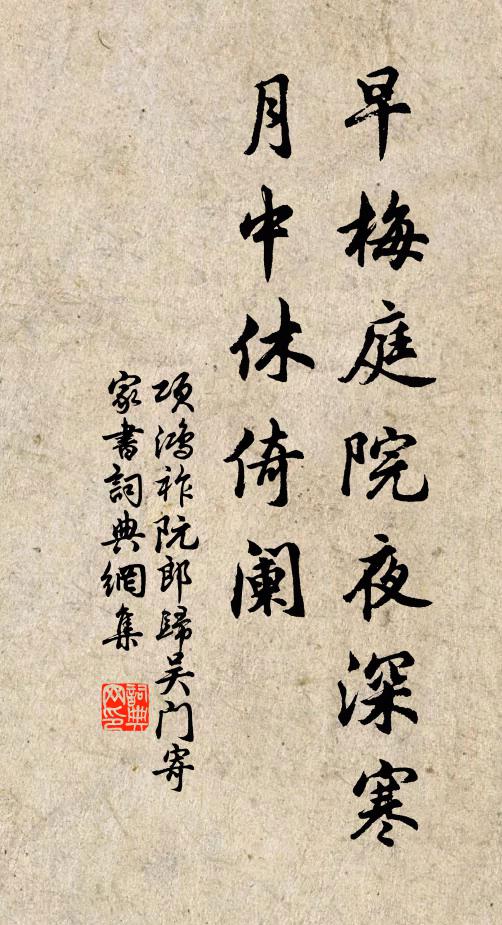 早梅庭院夜深寒
月中休倚阑
项鸿祚阮郎歸吴门寄
家書詞典網集
詞典网印